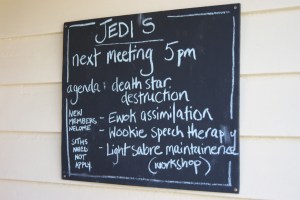 JEDI'S
next meeting 5pm
agenda: death star
destruction
- Ewok assimilation
- Wookie speech therapy
- Light sabre maintainence
(workshop)
NEW
MEMBERS
WELCOME
SITHS
NEED
NOT
APPLY